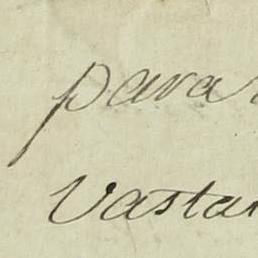 para
Vasta